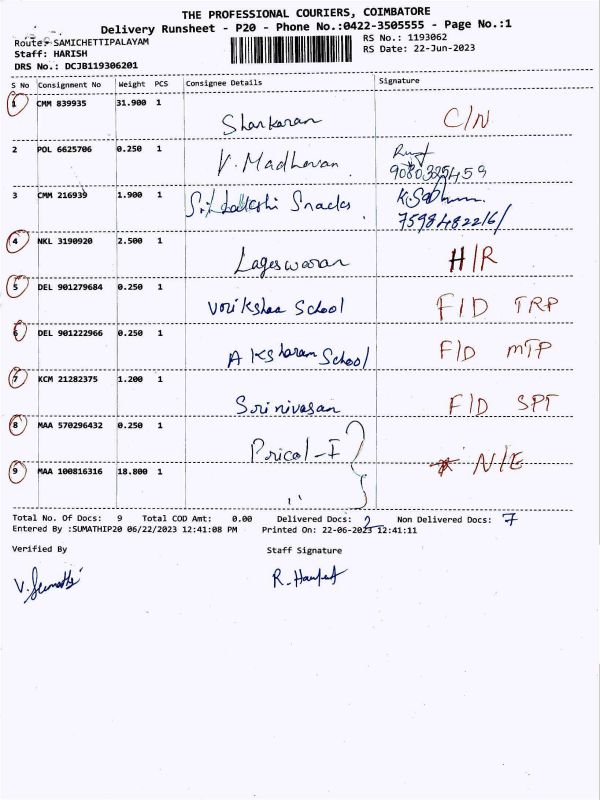 THE PROFESSIONAL COURIERS, COIMBATORE
Delivery Runsheet - P20 - Phone No.:0422-3505555 - Page No.:1
Route:- SAMICHETTIPALAYAM
RS No.: 1193062
Staff: HARISH
RS Date: 22-Jun-2023
DRS No.: DCJB119306201
S No Consignment No Weight PCS Consignee Details Signature
1 CMM 839935 31.900 1 Shankaran C/N
2 POL 6625706 0.250 1 V. Madhavan
9080325459
3 CMM 216939 1.900 1 Snacks
7598482216/
4 NKL 3190920 2.500 1 Lageswaran H/R
5 DEL 901279684 0.250 1 Vorikshaa School F/D TRP
6 DEL 901222966 0.250 1 Aksharam School F/D MTP
7 KCM 21282375 1.200 1 Srinivasan F/D SPT
8 MAA 570296432 0.250 1 Pricol-I
9 MAA 100816316 18.800 1 " N/E
Total No. Of Docs: 9 Total COD Amt: 0.00 Delivered Docs: 2 Non Delivered Docs: 7
Entered By :SUMATHIP20 06/22/2023 12:41:08 PM Printed On: 22-06-2023 12:41:11
Verified By Staff Signature
V. Sumathi